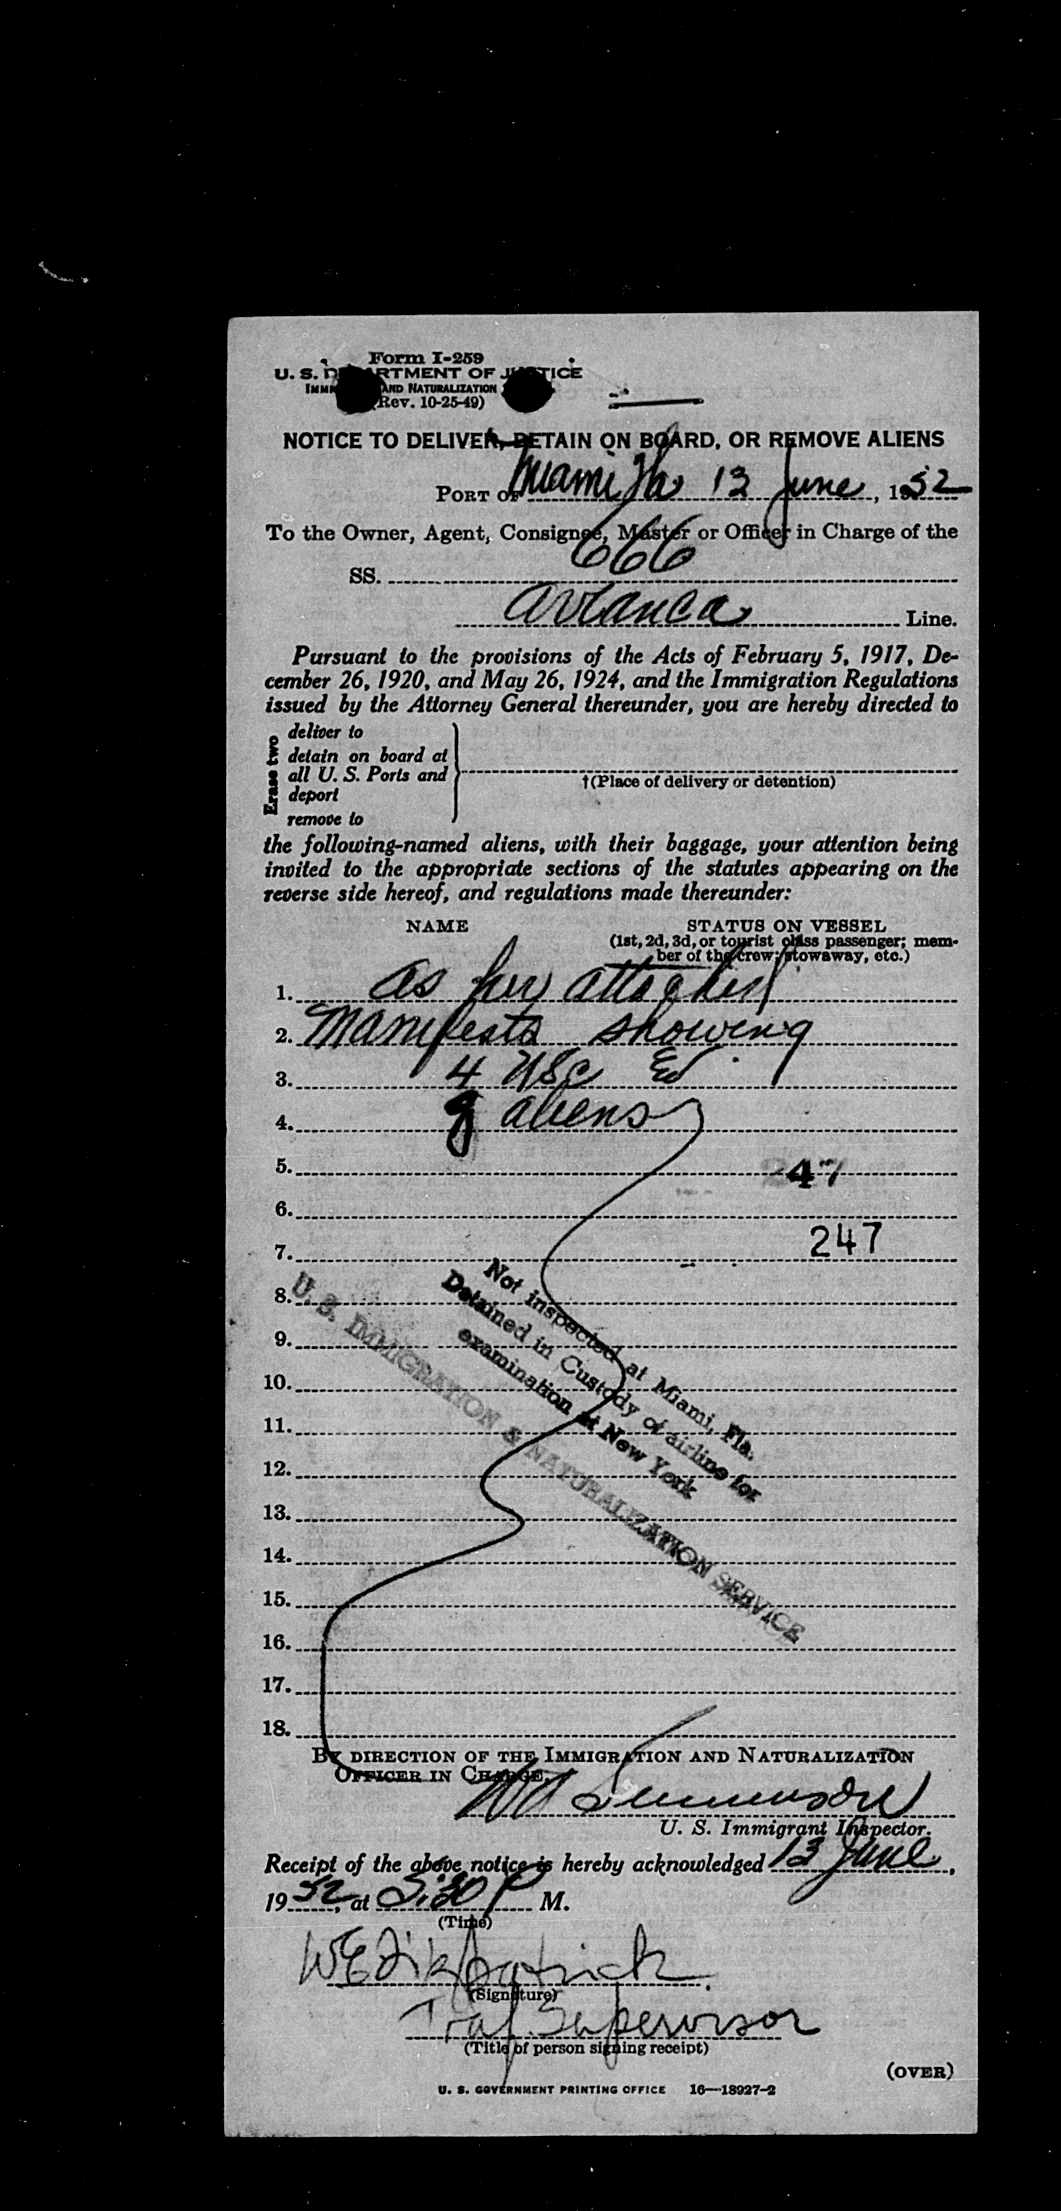 Form I-259
U. S. DEPARTMENT OF JUSTICE
IMM AND NATURALIZATION
(Rev. 10-25-49)
NOTICE TO DELIVER, DETAIN ON BOARD, OR REMOVE ALIENS
PORT OF Miami Fla 13 June, 1952
To the Owner, Agent, Consignee, Master or Officer in Charge of the
666
SS.
Avianca Line.
Pursuant to the provisions of the Acts of February 5, 1917, De-
cember 26, 1920, and May 26, 1924, and the Immigration Regulations
issued by the Attorney General thereunder, you are hereby directed to
Erase two
deliver to
detain on board at
all U. S. Ports and
deport
remove to
†(Place of delivery or detention)
the following-named aliens, with their baggage, your attention being
invited to the appropriate sections of the statutes appearing on the
reverse side hereof, and regulations made thereunder:
NAME STATUS ON VESSEL
(1st, 2d, 3d, or tourist class passenger; mem-
ber of the crew; stowaway, etc.)
1. as per attached
2. Manifests showing
3. 4 USC &
4. 9 aliens
5. 247
6.
7. 247
8.
9.
10.
11.
12.
13.
14.
15.
16.
17.
18.
Not inspected at Miami, Fla.
Detained in Custody of airline for
examination at New York
U. S. IMMIGRATION & NATURALIZATION SERVICE
BY DIRECTION OF THE IMMIGRATION AND NATURALIZATION
OFFICER IN CHARGE,
U. S. Immigrant Inspector.
Receipt of the above notice is hereby acknowledged 13 June,
1952, at 5:30 P M.
(Time)
(Signature)
Traf. Supervisor
(Title of person signing receipt)
(OVER)
U. S. GOVERNMENT PRINTING OFFICE 16—18927-2